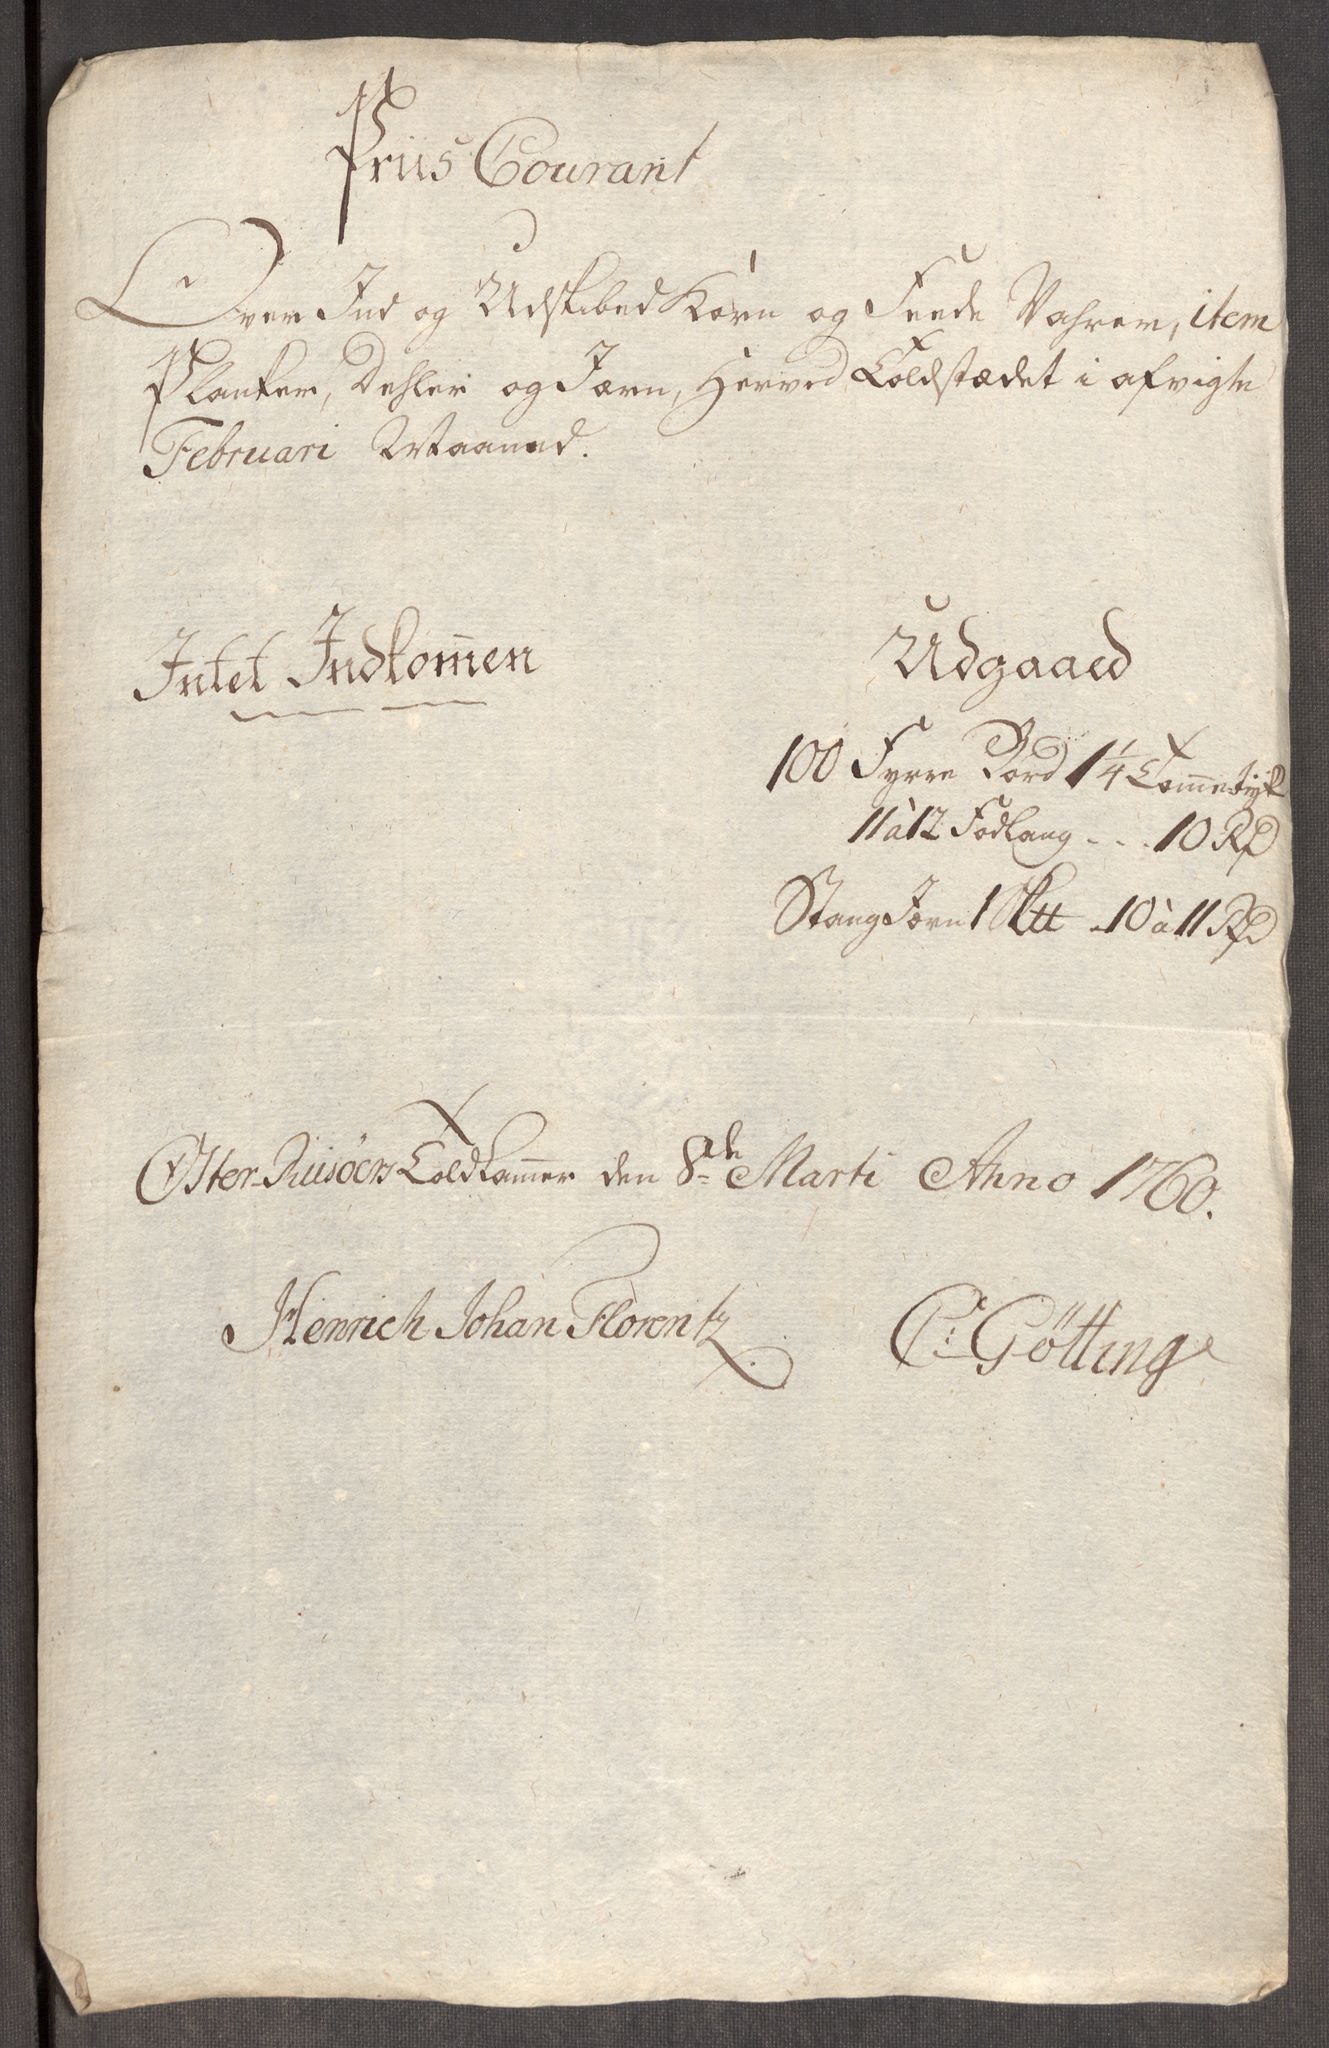 Priis Courant
Over Ind og Udskibed Korn og Feede Vahrer, item
Planker, Dehler og Jærn, Herved Toldstædet i afvigte
Februari Maaned.
Intet Indkom̄en
Udgaaed
100 Fyrre Bord 1 1/4 Tom̄e tyk
11 à 12 Fod lang - - . 10 Rd
Stang Jærn 1 Sk℔ . 10 à 11 Rd
Øster-Riisöers Toldkam̄er den 8de Marti Anno 1760.
Henrich Johan Florentz.
C: Götting